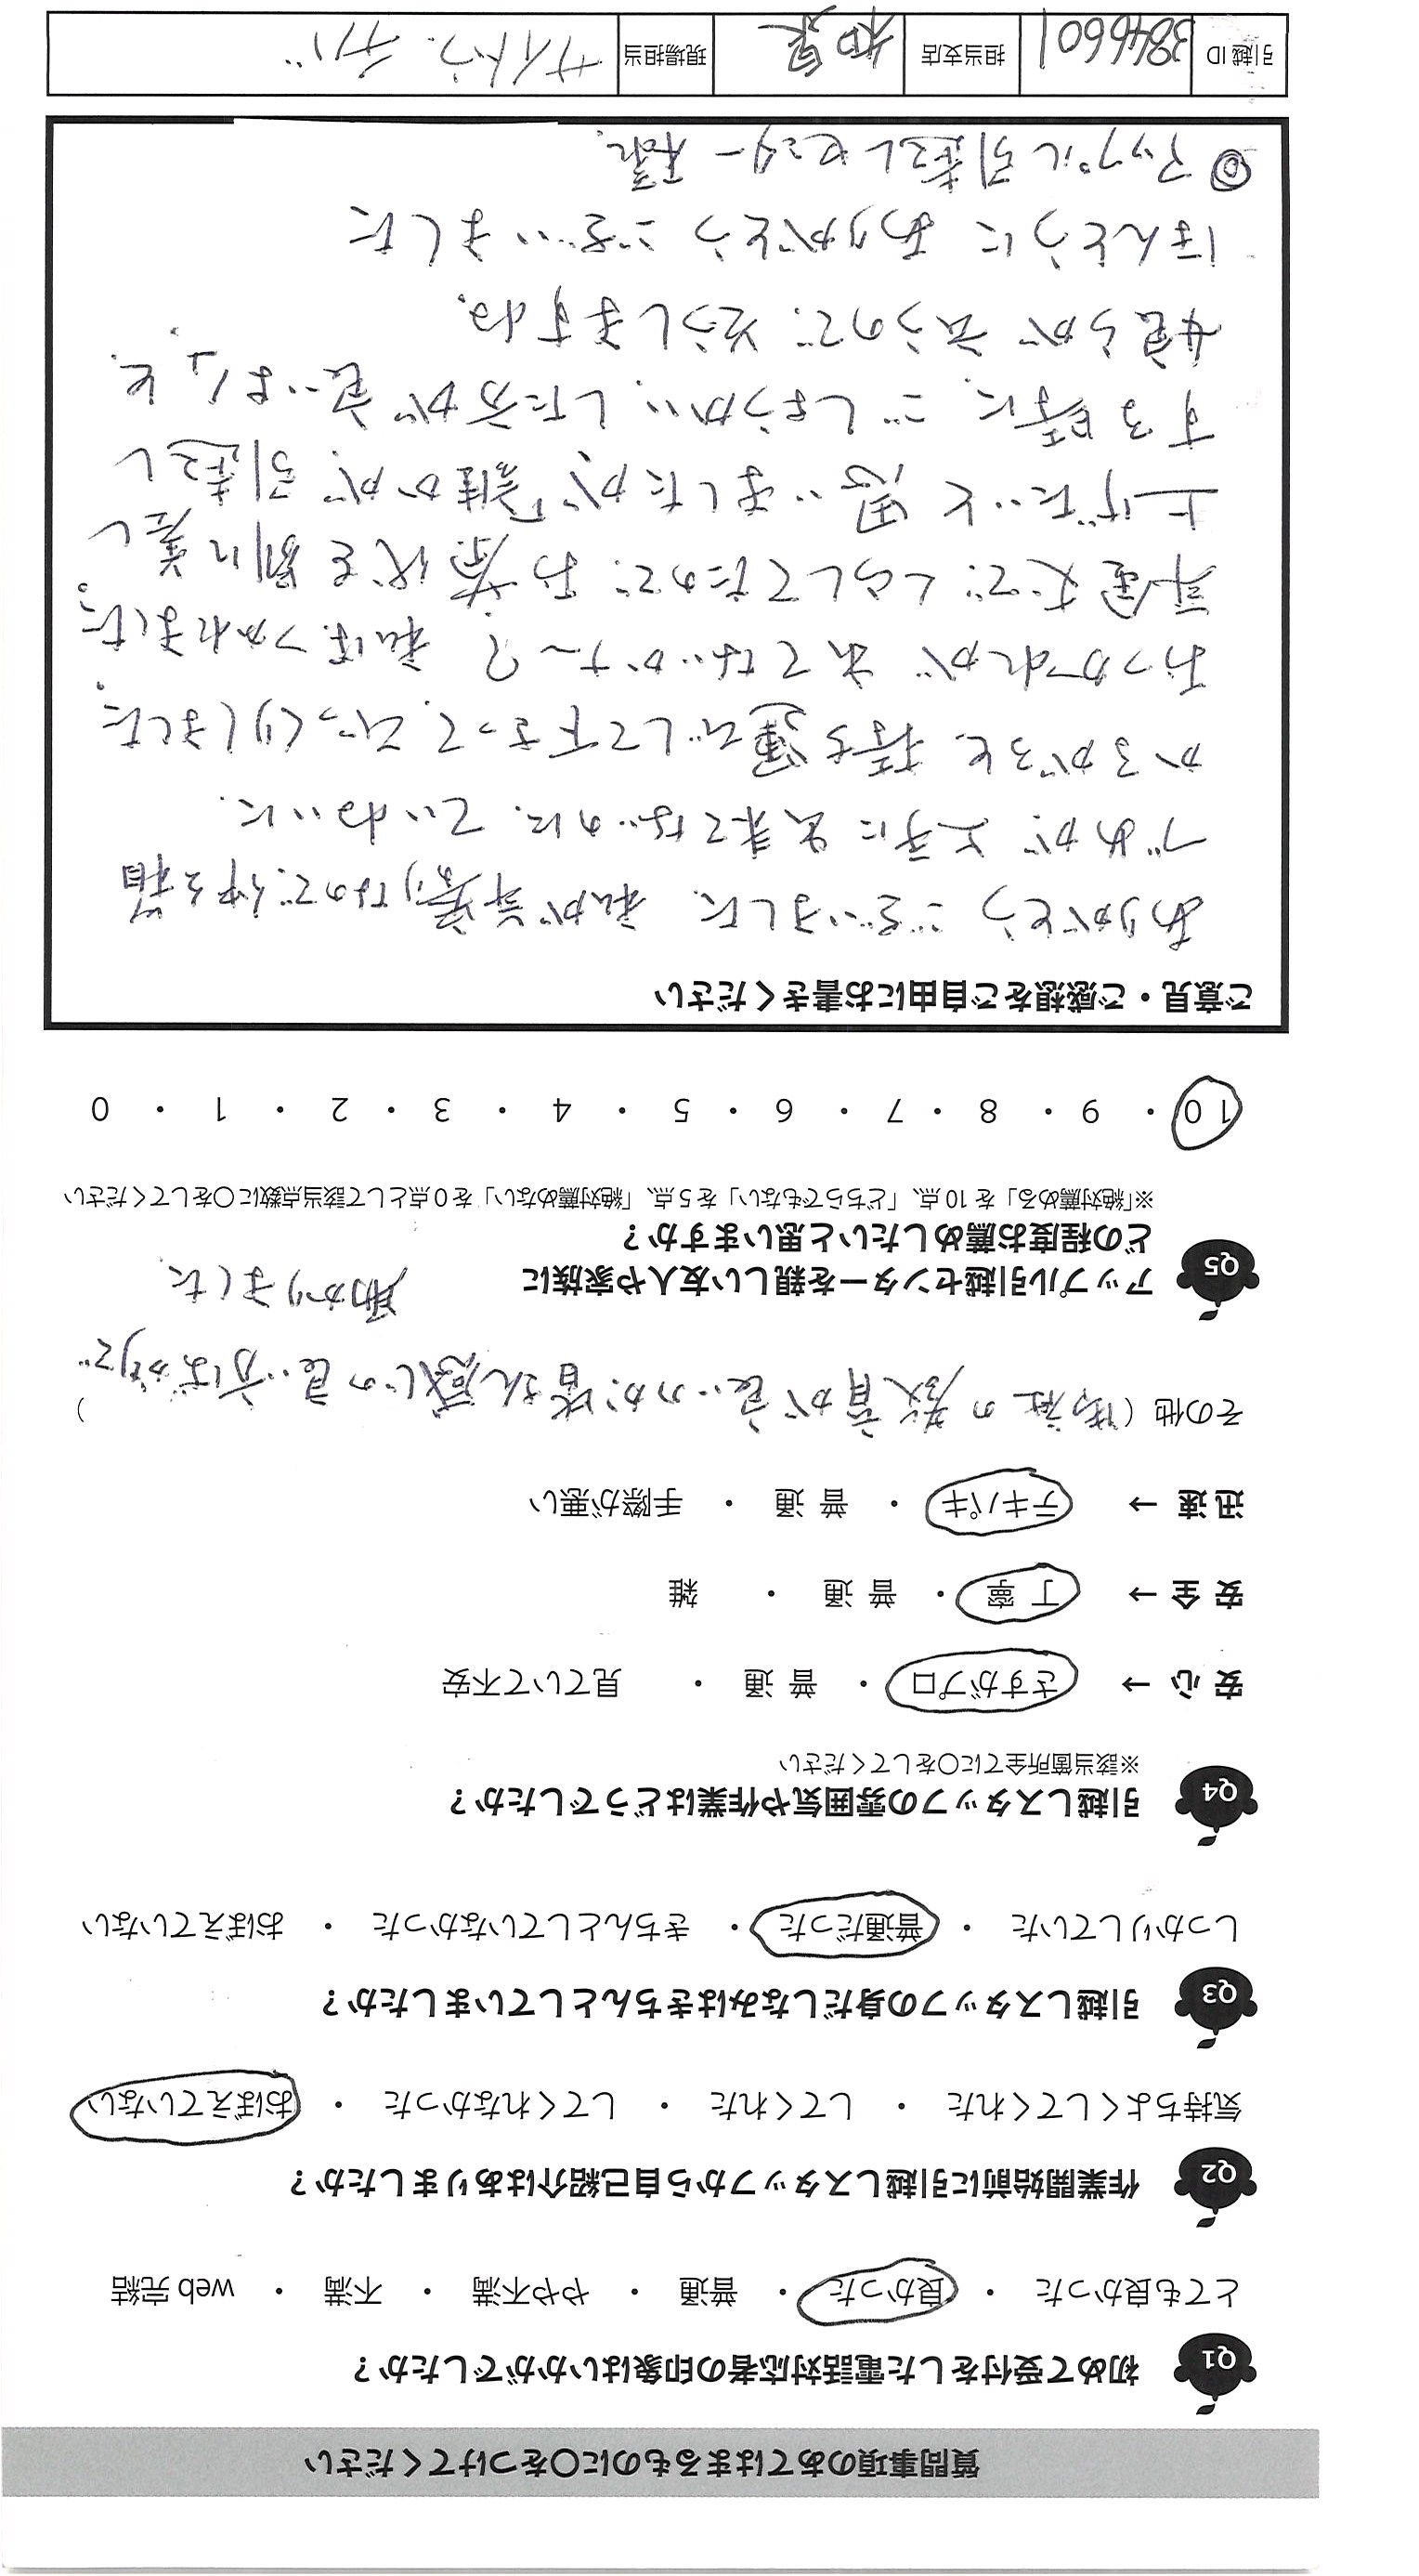 質問事項のあてはまるものに○をつけてください
Q1 初めて受付をした電話対応者の印象はいかがでしたか?
とても良かった ・ 良かった ・ 普通 ・ やや不満 ・ 不満 ・ web 完結
Q2 作業開始前に引越しスタッフから自己紹介はありましたか?
気持ちよくしてくれた ・ してくれた ・ してくれなかった ・ おぼえていない
Q3 引越しスタッフの身だしなみはきちんとしていましたか?
しっかりしていた ・ 普通だった ・ きちんとしていなかった ・ おぼえていない
Q4 引越しスタッフの雰囲気や作業はどうでしたか?
※該当箇所全てに○をしてください
安 心 → さすがプロ ・ 普 通 ・ 見ていて不安
安 全 → 丁 寧 ・ 普 通 ・ 雑
迅 速 → テキパキ ・ 普 通 ・ 手際が悪い
その他 (御社の教育が良いのか皆さん感じの良い方ばかりで )
助かりました
Q5 アップル引越センターを親しい友人や家族に
どの程度お薦めしたいと思いますか?
※「絶対薦める」を 10 点、「どちらでもない」を 5 点、「絶対薦めない」を 0 点として該当点数に○をしてください
10 ・ 9 ・ 8 ・ 7 ・ 6 ・ 5 ・ 4 ・ 3 ・ 2 ・ 1 ・ 0
ご意見・ご感想をご自由にお書きください
ありがとうございました 私が年寄りなので、荷
づめが上手に出来てないのに、ていねいに、
かるがると、持ち運びして下さって、びっくりしました。
おつかれが出てないかナ〜? 私はつかれました。
年金丈でくらしてたので、お茶代を別に差し
上げたいと思いましたが「誰かが、引越し
する時に、ごしょうかい、した方が良いよ」と、
娘らが云うので、そうしますね。
ほんとうにありがとうございました
◎アップル引越しセンター様。
引越 ID 3846601 担当支店 和泉 現場担当 サイトウ.